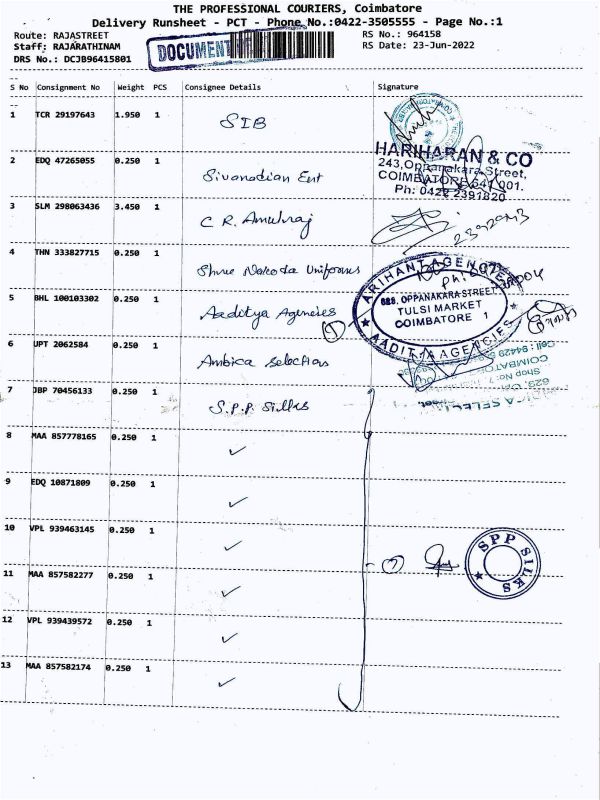 THE PROFESSIONAL COURIERS, Coimbatore
Delivery Runsheet - PCT - Phone No.:0422-3505555 - Page No.:1
Route: RAJASTREET RS No.: 964158
Staff: RAJARATHINAM DOCUMENT RS Date: 23-Jun-2022
DRS No.: DCJB96415801
S No Consignment No Weight PCS Consignee Details Signature
1 TCR 29197643 1.950 1 SIB
HARIHARAN & CO
243, Oppanakara Street,
COIMBATORE 641 001.
Ph: 0422 2391820
2 EDQ 47265055 0.250 1 Sivanadian Ent
3 SLM 298063436 3.450 1 C R. Amulraj
4 THN 333827715 0.250 1 Shree Nakoda Uniforms
ARIHANT AGENCIES
628, OPPANAKARA STREET
TULSI MARKET
COIMBATORE 1
AADITYA AGENCIES
5 BHL 100103302 0.250 1 Aaditya Agencies
6 UPT 2062584 0.250 1 Ambica Selections
7 JBP 70456133 0.250 1 S.P.P. Silks
8 MAA 857778165 0.250 1
9 EDQ 10871809 0.250 1
10 VPL 939463145 0.250 1
7 SPP SILKS
11 MAA 857582277 0.250 1
12 VPL 939439572 0.250 1
13 MAA 857582174 0.250 1